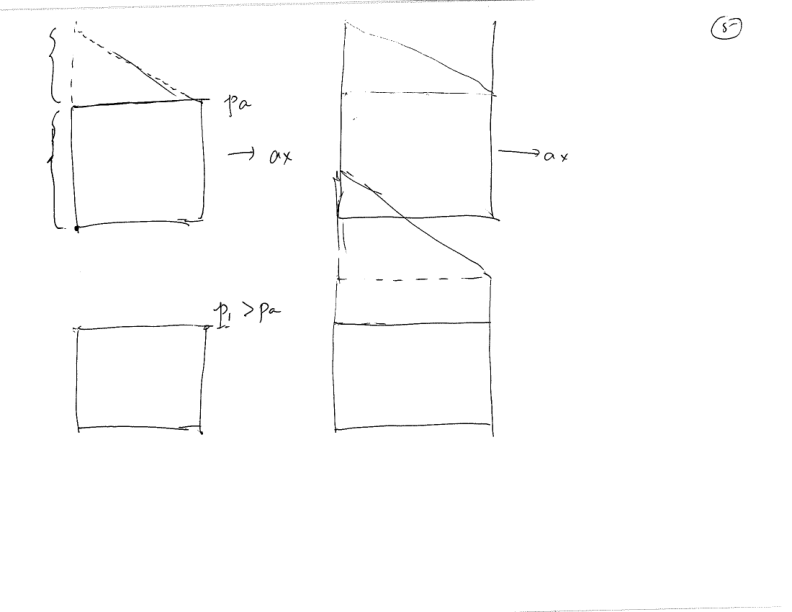 5
pa
→ ax
→ ax
p₁ > pa